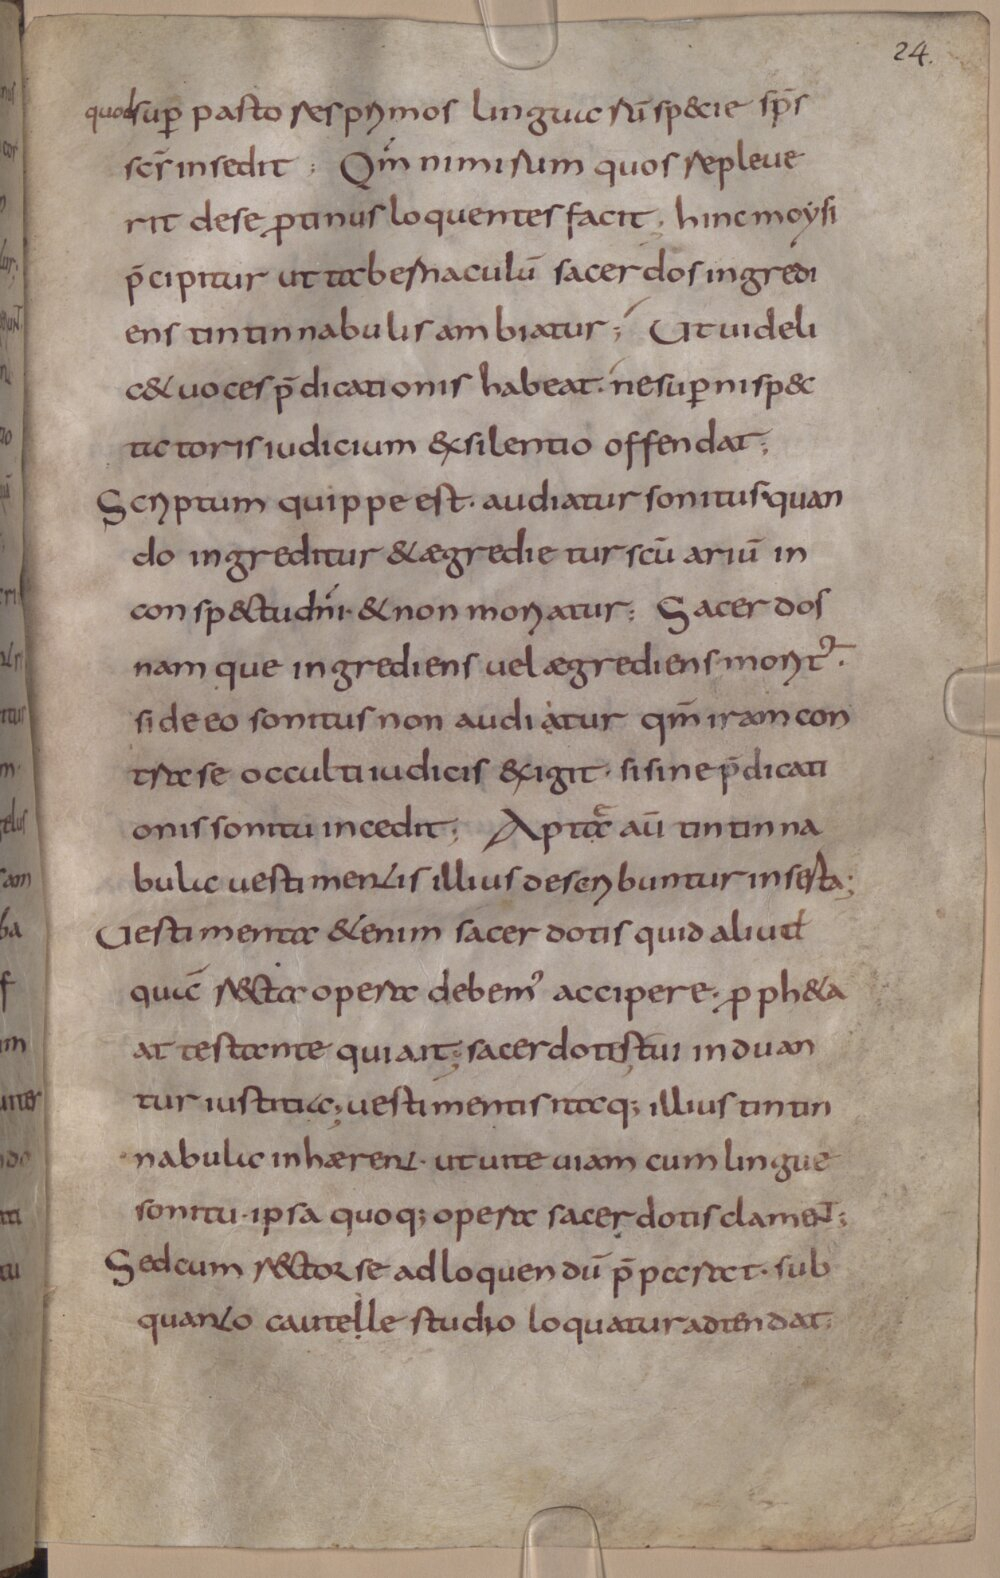 24.
quod sup̱ pastores primos linguarū specie sp̄s
sc̄s insedit; Qm̄ nimirum quos repleue
rit de se ꝓtinus loquentes facit; hinc moysi
p̄cipitur ut tabernaculū sacerdos ingredi
ens tintinnabulis ambiatur; Ut uideli
c& uoces p̄dicationis habeat. ne sup̱ni spec
tatoris iudicium & silentio offendat;
Scriptum quippe est. audiatur sonitus quan
do ingreditur & ægredietur scūariū in
conspectu dn̄i. & non moriatur; Sacerdos
namque ingrediens uel ægrediens morit᷒.
si de eo sonitus non audiatur qm̄ iram con
tra se occulti iudicis exigit. si sine p̄dicati
onis sonitu incedit; Aptæ aū tintinna
bula uestimentis illius describuntur inserta;
Uestimenta &enim sacerdotis quid aliut
quā recta opera debem᷒ accipere. ꝓph&a
at testante qui ait; sacerdotes tui induan
tur iustitia; uestimentis itaq; illius tintin
nabula inhærent. ut uite uiam cum lingue
sonitu. ipsa quoq; opera sacerdotis clament;
Sed cum rector se ad loquendū p̄parat. sub
quanto cautelle studio loquatur adtendat;